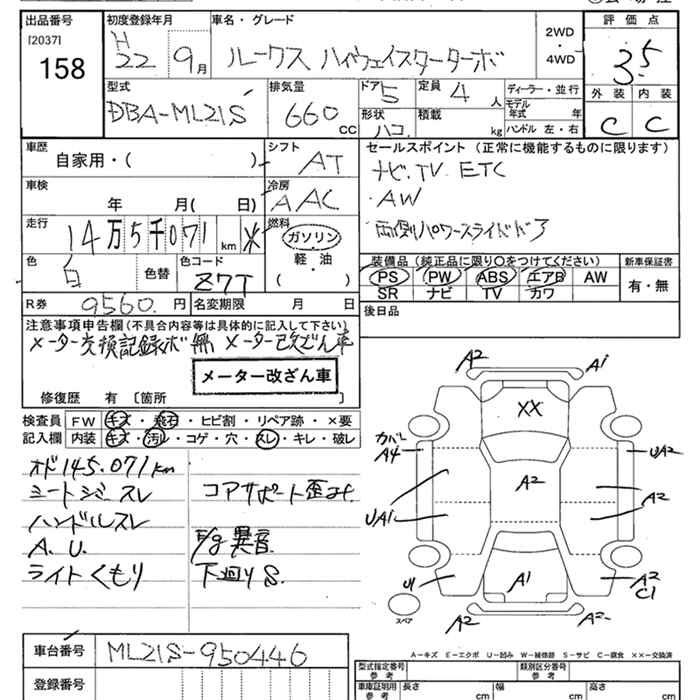 出品番号
[2037]
158
初度登録年月
H
22 9月
車名・グレード
ルークス ハイウェイスターターボ
2WD
・
4WD
評価点
3.5
外装 内装
C C
型式
DBA-ML21S
排気量
660 CC
ドア
5
定員
4 人
形状
ハコ
積載
kg
ディーラー・並行
モデル年式 年
ハンドル 左・右
車歴
自家用・( )
シフト
AT
セールスポイント (正常に機能するものに限ります)
ナビ.TV ETC
AW
両側パワースライドドア
車検
年 月( 日)
冷房
AAC
走行
14万5千071 km
燃料
ガソリン
・
軽・油
( )
色
白
色替
色コード
Z7T
装備品(純正品に限り○をつけてください)
PS PW ABS エアB AW
SR ナビ TV カワ
新車保証書
有・無
R券
9560. 円
名変期限 月 日
後日品
注意事項申告欄(不具合内容等は具体的に記入して下さい)
メーター交換記録ボ無 メーター改ざん車
メーター改ざん車
修復歴 有 〔箇所 〕
検査員 FW キズ・飛石・ヒビ割・リペア跡・×要
記入欄 内装 キズ・汚レ・コゲ・穴・スレ・キレ・破レ
オド145.071km
シートシミ スレ
コアサポート歪
ハンドルスレ
A.U.
E/g異音
ライトくもり
下廻りS.
A2 A1
XX
カバー
A4
UA2
A2
A2
UA1
U
A1
A2
C1
スペア
A2 A2
A-キズ E-エクボ U-凹み W-補修跡 S-サビ C-腐食 ××-交換済
車台番号
ML21S-950446
登録番号
型式指定番号
参考
類別区分番号
参考
車庫証明用
参考
長さ cm
幅 cm
高さ cm